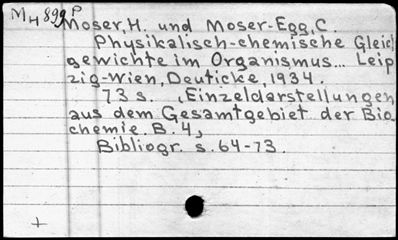 MH 899 P
Moser, H. und Moser-Egg, C.
Physikalisch-chemische Gleich
gewichte im Organismus... Leip
zig-Wien, Deuticke, 1934.
73 s. (Einzeldarstellungen
aus dem Gesamtgebiet der Bio
chemie. B. 4,)
Bibliogr. s. 64-73.